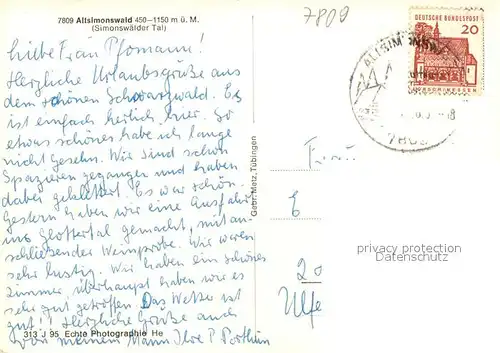 7809 Altsimonswald 450–1150 m ü. M.
(Simonswälder Tal)
7809
Liebe Frau Pfomann!
Herzliche Urlaubsgrüße aus
dem schönen Schwarzwald. Es
ist einfach herlich hier. So
etwas schönes habe ich lange
nicht Gesehn. Wir sind schon
Spazieren gegangen und haben
dabei geklettert. Es war schön.
Gestern haben wir eine Ausfahrt
ins Glottertal gemacht, mit an-
schließender Weinprobe. Wir waren
sehr lustig. Wir haben ein schönes
Zimmer überhaupt haben wir es
sehr gut getroffen. Das Wetter ist
gut! Herzliche Grüße auch
von meinem Mann Ilse P
313 J 95 Echte Photographie He
Gebr. Metz, Tübingen
DEUTSCHE BUNDESPOST
20
ALTSIMONSW
Frau
privacy protection
20